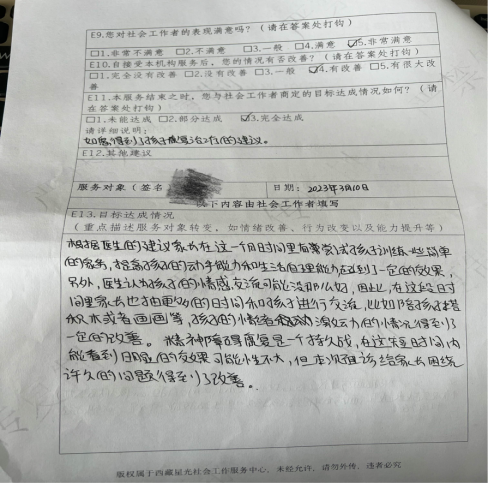 E9.您对社会工作者的表现满意吗？（请在答案处打钩）
□1.非常不满意 □2.不满意 □3.一般 □4.满意 ☑5.非常满意
E10.自接受本机构服务后，您的情况有否改善？（请在答案处打钩）
□1.完全没有改善 □2.没有改善 □3.一般 ☑4.有改善 □5.有很大改
善
E11.本服务结束之时，您与社会工作者商定的目标达成情况如何？（请
在答案处打钩）
□1.未能达成 □2.部分达成 ☑3.完全达成
请详细说明：
如愿得到了孩子康复治疗的建议。
E12.其他建议
服务对象（签名
日期：2023年3月10日
以下内容由社会工作者填写
E13.目标达成情况
（重点描述服务对象转变，如情绪改善、行为改变以及能力提升等）
根据医生的建议家长在这一个月时间里面常尝试孩子训练一些简单
的家务，培养孩子的动手能力和生活自理能力达到了一定的效果，
另外，医生认为孩子的情感交流可能没那么好，因此，在这段时
间里家长也抽更多的时间和孩子进行交流，比如陪孩子搭
积木或者画画等，孩子的情绪波动的情况得到了
一定的改善。精神障碍康复是一个持久战，在这短时间内
能看到明显的效果可能性不大，但本次咨询该给家长困绕
许久的问题得到了改善。
版权属于西藏星光社会工作服务中心，未经允许，请勿外传，违者必究